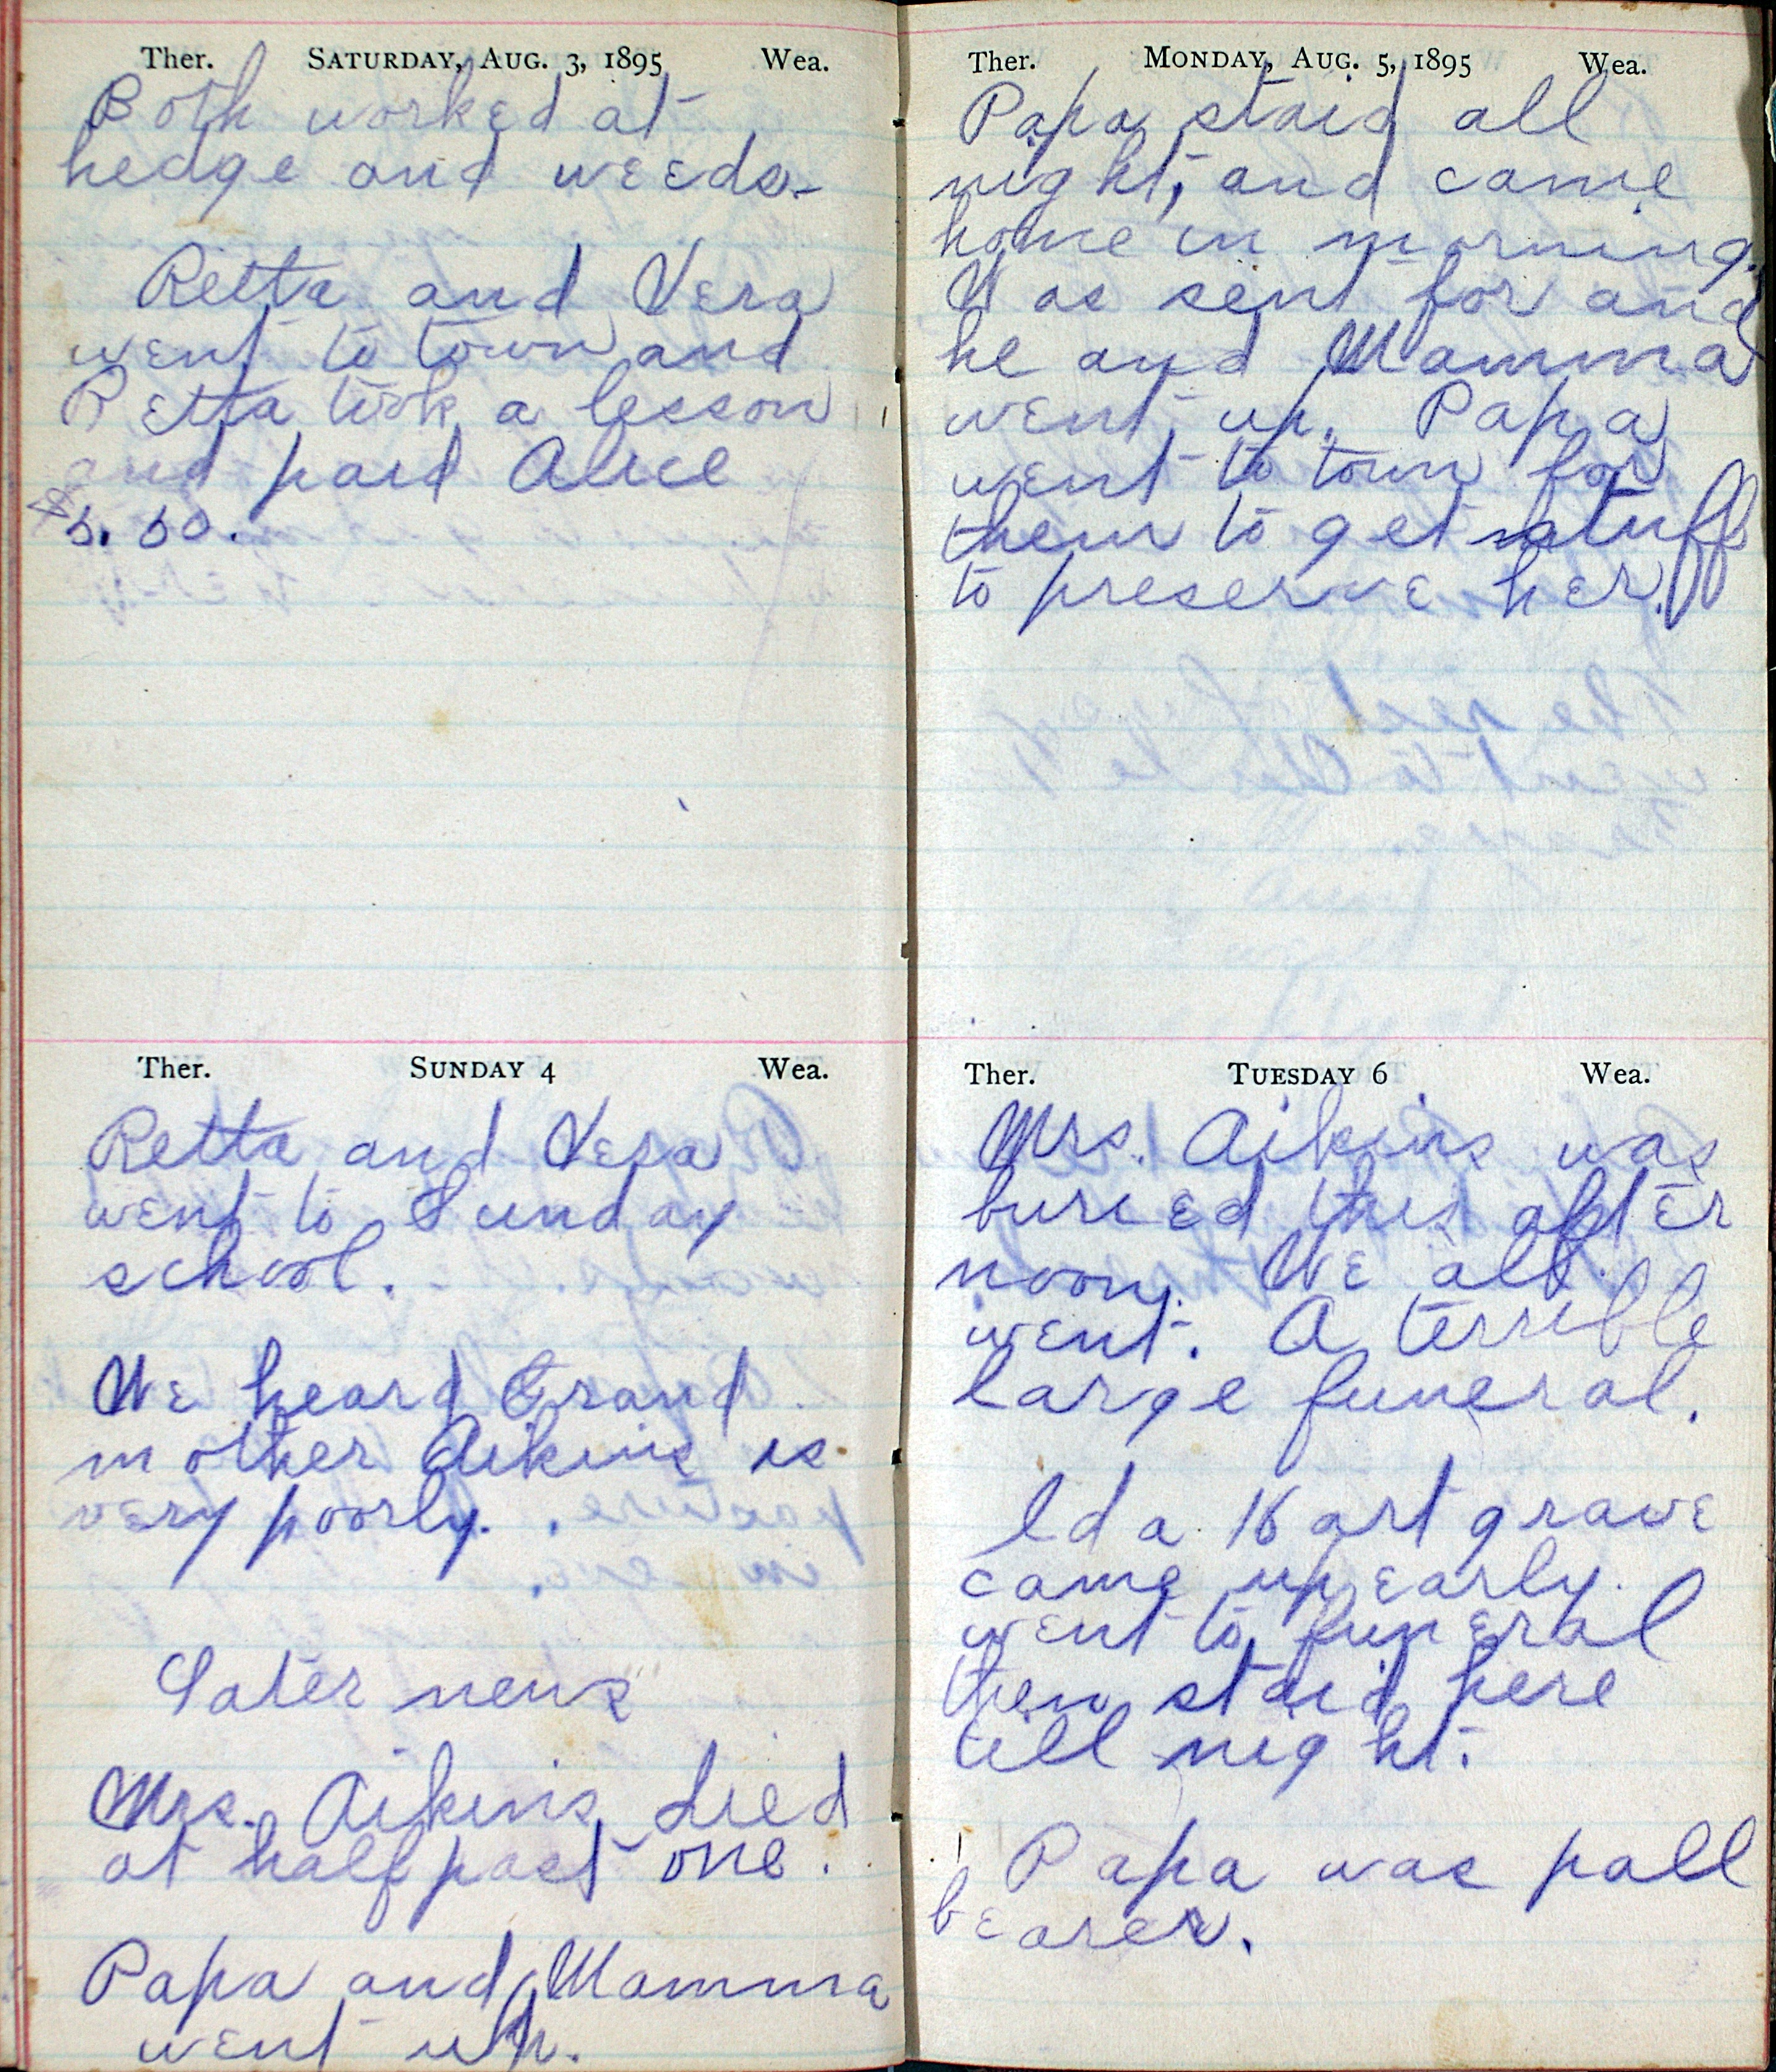 Ther. SATURDAY, AUG. 3, 1895 Wea.
Both worked at
hedge and weeds.
Retta and Vera
went to town and
Retta took a lesson
and paid Alice
$5.50.
Ther. SUNDAY 4 Wea.
Retta and Vera
went to Sunday
school.
We heard Grand
mother Aikins is
very poorly.
Later news
Mrs. Aikins died
at half past one.
Papa and Mamma
went up.
Ther. MONDAY, AUG. 5, 1895 Wea.
Papa staid all
night, and came
home in morning.
Was sent for and
he and Mamma
went up. Papa
went to town for
them to get stuff
to preserve her.
Ther. TUESDAY 6 Wea.
Mrs. Aikins was
buried this after
noon. We all
went. A terrible
large funeral.
Ida Hartgrave
came up early.
went to funeral
then staid here
till night.
Papa was pall
bearer.